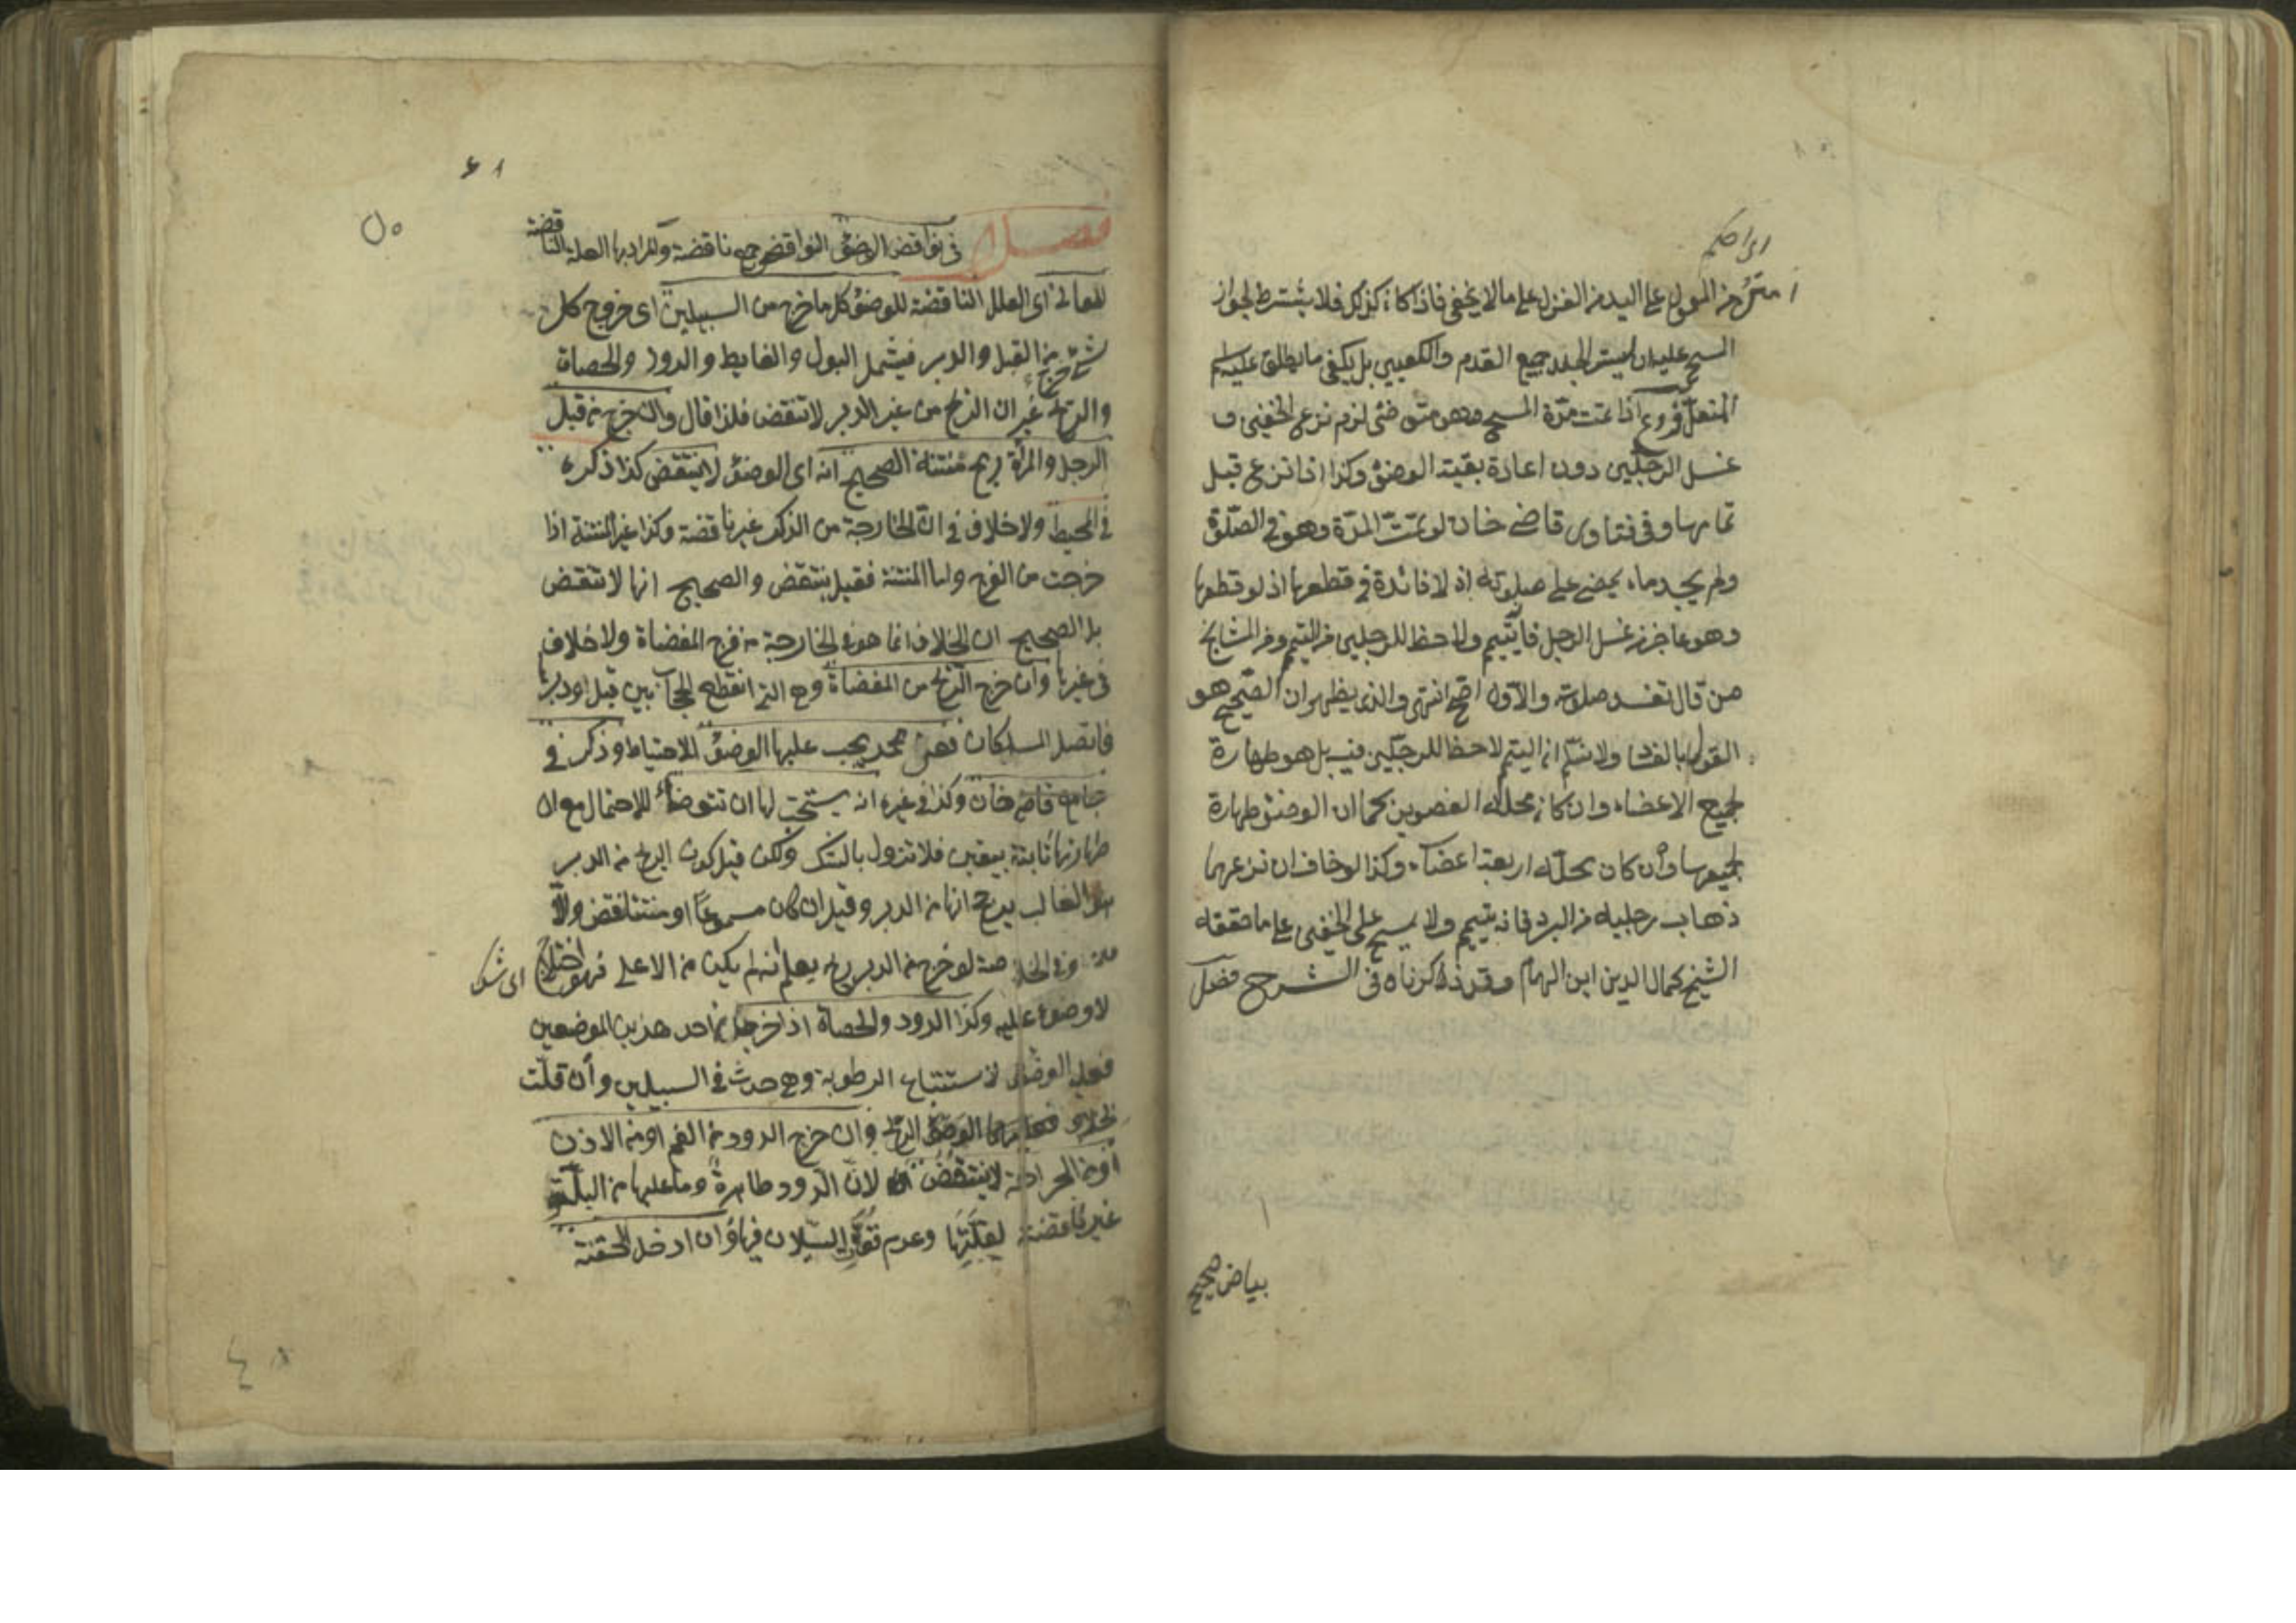 امتن من المعمول على اليد من الغزل على ما لا يخفى فاذا كان كذلك فلا يشترط لجواز
المسح عليه ان يستر الجلد جميع القدم والكعبين بل يكفى ما يطلق عليه اسم
المنعل فروع اذا تمت مدة المسح وهو متوضئ لزم نزع الخفين و
غسل الرجلين دون اعادة بقية الوضؤ وكذا اذا نزع قبل
تمامها وفى فتاوى قاضى خان لو تمت المدة وهو فى الصلوة
ولم يجد ماء يمضى على صلوته اذ لا فائدة فى قطعها اذ لو قطعها
وهو عاجز عن غسل الرجل فانه يتيمم ولا حظ للرجلين من التيمم ومن المشايخ
من قال تفسد صلوته والاول اصح انتهى والذى يظهر ان الصحيح هو
القول بالفساد ولا نسلم ان التيمم لا حظ للرجلين فيه بل هو طهارة
لجميع الاعضاء وان كان محله العضوين كما ان الوضؤ طهارة
لجميعها وان كان محله اربعة اعضاء وكذا لو خاف ان نزعهما
ذهاب رجليه من البرد فانه يتيمم ولا يمسح على الخفين على ما حققه
الشيخ كمال الدين ابن الهمام وقد ذكرناه فى الشرح فصل
بياض صحيح
٥٠
فصل فى نواقض الوضؤ النواقض جمع ناقضة والمراد بها العلة الناقضة
المعانى اى العلل الناقضة للوضؤ كل ما خرج من السبيلين اى خروج كل
شئ خرج من القبل والدبر فيشمل البول والغايط والدود والحصاة
والريح غير ان الريح من غير الدبر لا تنقض فلذا قال وان خرج من قبل
الرجل والمرأة ريح منتنة الصحيح انه اى الوضؤ لا ينتقض كذا ذكره
فى المحيط ولا خلاف فى ان الخارجة من الذكر غير ناقضة وكذا غير المنتنة اذا
خرجت من الفرج واما المنتنة فقيل ينتقض والصحيح انها لا تنقض
بل الصحيح ان الخلاف انما هو فى الخارجة من فرج المفضاة ولا خلاف
فى غيرها وان خرج الريح من المفضاة وهى التى انقطع الحجاب بين قبلها ودبرها
فاتصل المسلكان فعن محمد يجب عليها الوضؤ للاحتياط وذكر فى
جامع قاضى خان وكذا فى غيره انه يستحب لها ان تتوضأ للاحتمال مع ان
طهارتها ثابتة بيقين فلا تزول بالشك ولكن قيل كون الريح من الدبر
هو الغالب يرجح انها من الدبر وقيل ان كان مسموعا او منتنا نقض والا
فلا وفى الخلاصة لو خرج من الدبر ريح يعلم انه لم يكن من الاعلى فهو اختلاج
لا وضوء عليه وكذا الدود والحصاة اذا خرجا من احد هذين الموضعين
فعليه الوضؤ لاستتباع الرطوبة وهى حدث فى السبيلين وان قلت
بخلاف الريح وان خرج الدود من الفم او من الاذن
او من الجراحة لا ينتقض لان الدود طاهرة وما عليها من البلة
غير ناقضة لقلتها وعدم قوة السيلان فيها وان ادخل الحقنة